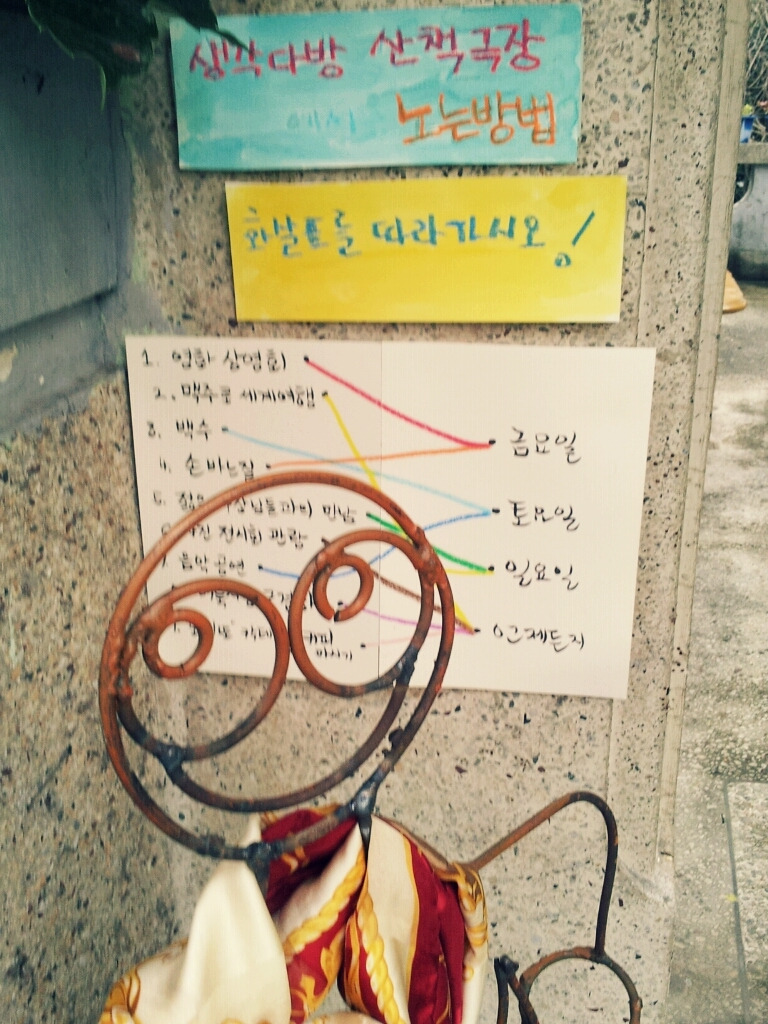 생각다방 산책극장
에서 노는방법
화살표를 따라가시오!
1. 영화 상영회
2. 맥주로 세계여행
3. 백수
4. 손바느질
5. 젊은 만남
6. 사진 전시회 관람
음악공연
마시기
금요일
토요일
일요일
언제든지